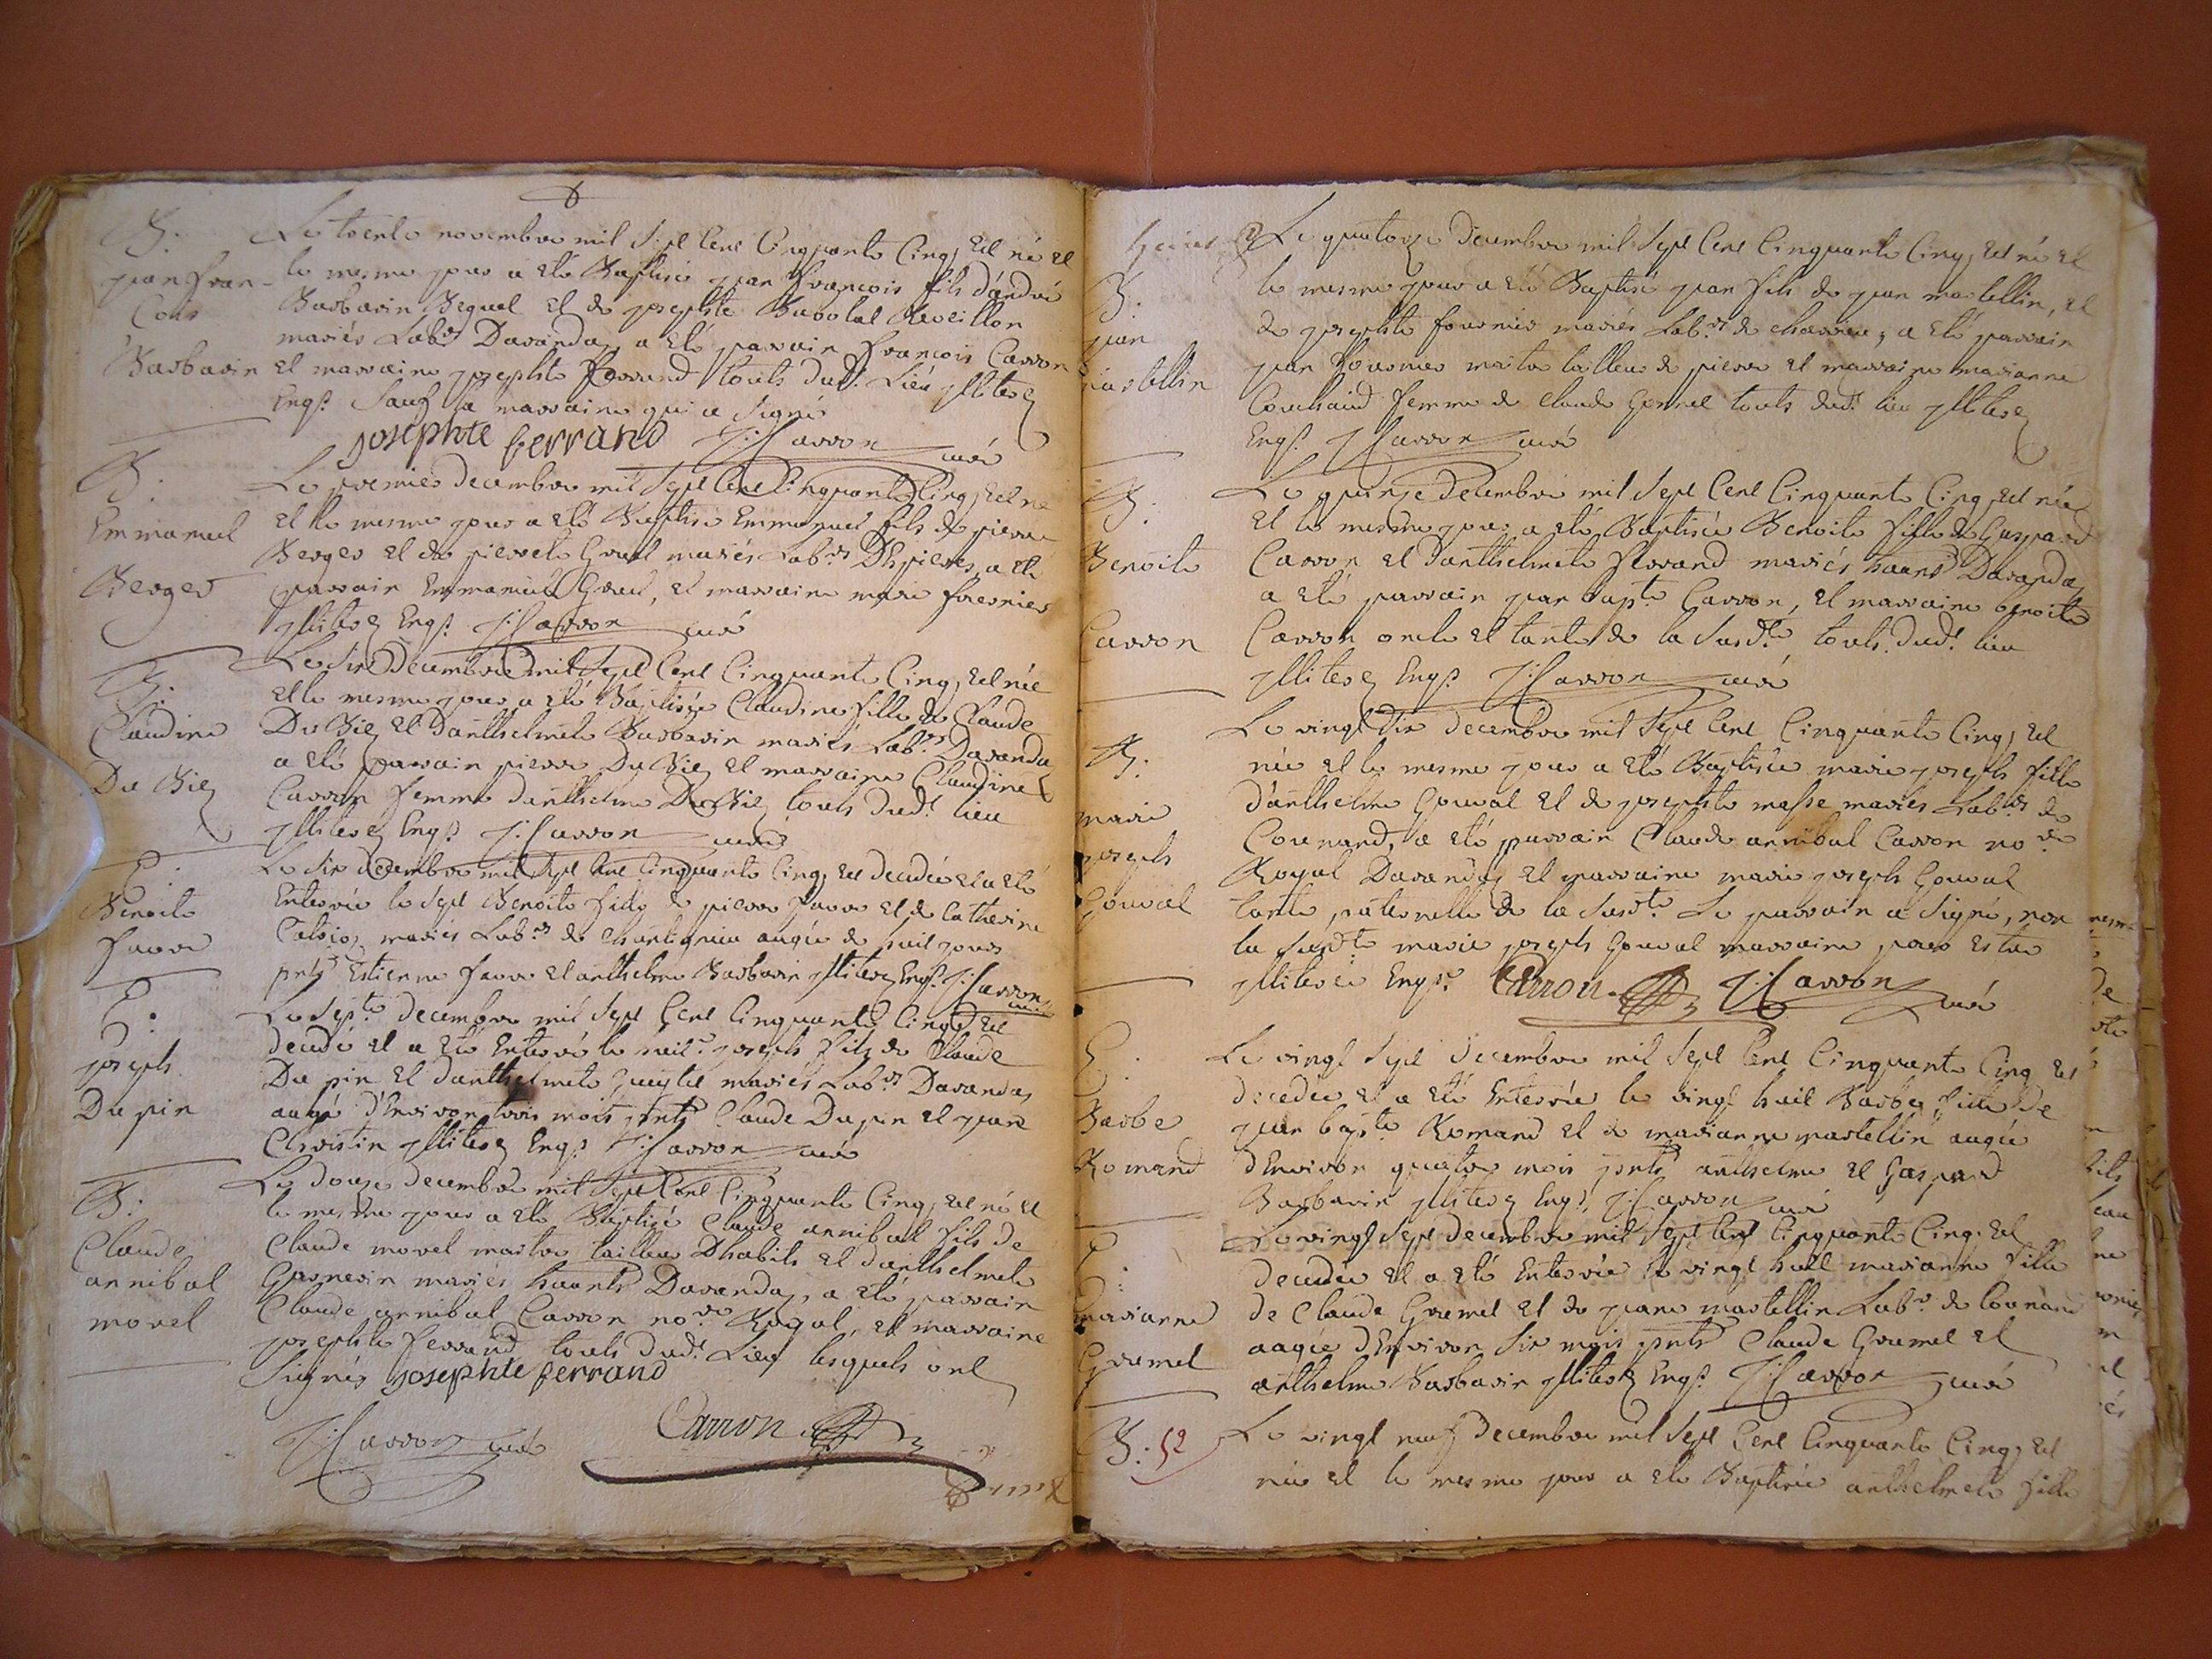 B:
jean fran-
cois
Barbarin
Le trente novembre mil sept cent cinquante cinq, est né et
le mesme jour a eté Baptisé jean francois fils d'andré
Barbarin Bequet et de josephte Reveillon
mariés Labrs Davanda, a eté parrain francois Carron
et marraine josephte ferrand touts dudt Lieu jllitere
Enqs. sauf la marraine qui a signé
josephte ferrand J: Carron curé
B:
Emmanuel
Berger
Le premier decembre mil sept cent cinquante cinq, est né
et le mesme jour a eté Baptisé Emmanuel fils de pierre
Berger et de pierrete mariés Labrs a eté
parrain Emmanuel et marraine marie
jllitere Enqs. J: Carron curé
B:
Claudine
Du Biez
Le six decembre mil sept cent cinquante cinq, est née
et le mesme jour a eté Baptisée Claudine fille de Claude
Du Biez et Danthelmete Barbarin mariés Labrs Davanda
a eté parrain pierre Du Biez et marraine Claudine
Carron femme danthelme Du Biez touts dudt lieu
jllitere Enqs. J: Carron curé
E:
Benoite
favre
Le six decembre mil sept cent cinquante cinq, est decedée et a eté
Enterrée le sept Benoite fille de pierre favre et de Catherine
mariés Labrs de aagée de huit jours
pnts Estienne favre et anthelme Barbarin jllitere Enqs. J: Carron
curé
E:
joseph
Du pin
Le sept decembre mil sept cent cinquante cinq, est
decedé et a eté Enterré le joseph fils de Claude
Du pin et danthelmete mariés Labrs Davanda,
aagé d'Environ trois mois pnts Claude Du pin et jean
Christin jllitere Enqs. J: Carron curé
B:
Claude
annibal
morel
Le douze decembre mil sept cent cinquante cinq, est né et
le mesme jour a eté Baptisé Claude annibal fils de
Claude morel maitre tailleur Dhabits et danthelmete
mariés haants Davanda, a eté parrain
Claude annibal Carron nore Royal, et marraine
josephte ferrand touts dudt Lieu lesquels ont
signés josephte ferrand
J: Carron curé Carron
B:
jean
martellin
Le quatorze decembre mil sept cent cinquante cinq, est né et
le mesme jour a eté Baptisé jean fils de jean martellin, et
de josephte fournier mariés Labrs de a eté parrain
jean fournier maitre tailleur de pierre et marraine marianne
femme de Claude touts dudt lieu jllitere
Enqs. J: Carron curé
B:
Benoite
Carron
Le quinze decembre mil sept cent cinquante cinq, est née
et le mesme jour a eté Baptisée Benoite fille de Gaspard
Carron et danthelmete ferrand mariés haants Davanda
a eté parrain jean bapte Carron, et marraine benoite
Carron oncle et tante de la susdte touts dudt lieu
jllitere Enqs. J: Carron curé
B:
marie
joseph
Gouval
Le vingt six decembre mil sept cent cinquante cinq, est
née et le mesme jour a eté Baptisée marie joseph fille
d'anthelme Gouval et de josephte masse mariés Labrs de
Counand, a eté parrain Claude annibal Carron nore
Royal Davanda, et marraine marie joseph Gouval
tante paternelle de la susdte Le parrain a signé, non
la susdte marie joseph Gouval marraine pour estre
jlliterée Enqse. Carron J: Carron curé
E:
Barbe
Romand
Le vingt sept decembre mil sept cent cinquante cinq est
decedée et a eté Enterrée le vingt huit Barbe fille de
jean bapte Romand et de marianne martellin aagée
d'Environ quatre mois pnts anthelme et Gaspard
Barbarin jllitere Enqs. J: Carron curé
E:
marianne
Grumel
Le vingt sept decembre mil sept cent cinquante cinq, est
decedée et a eté Enterrée le vingt huit marianne fille
de Claude Grumel et de jeane martellin Labrs de Counand
aagée d'Environ six mois pnts Claude Grumel et
anthelme Barbarin jllitere Enqs. J: Carron curé
B: 52
Le vingt neuf decembre mil sept cent cinquante cinq, est
née et le mesme jour a eté Baptisée anthelmete fille